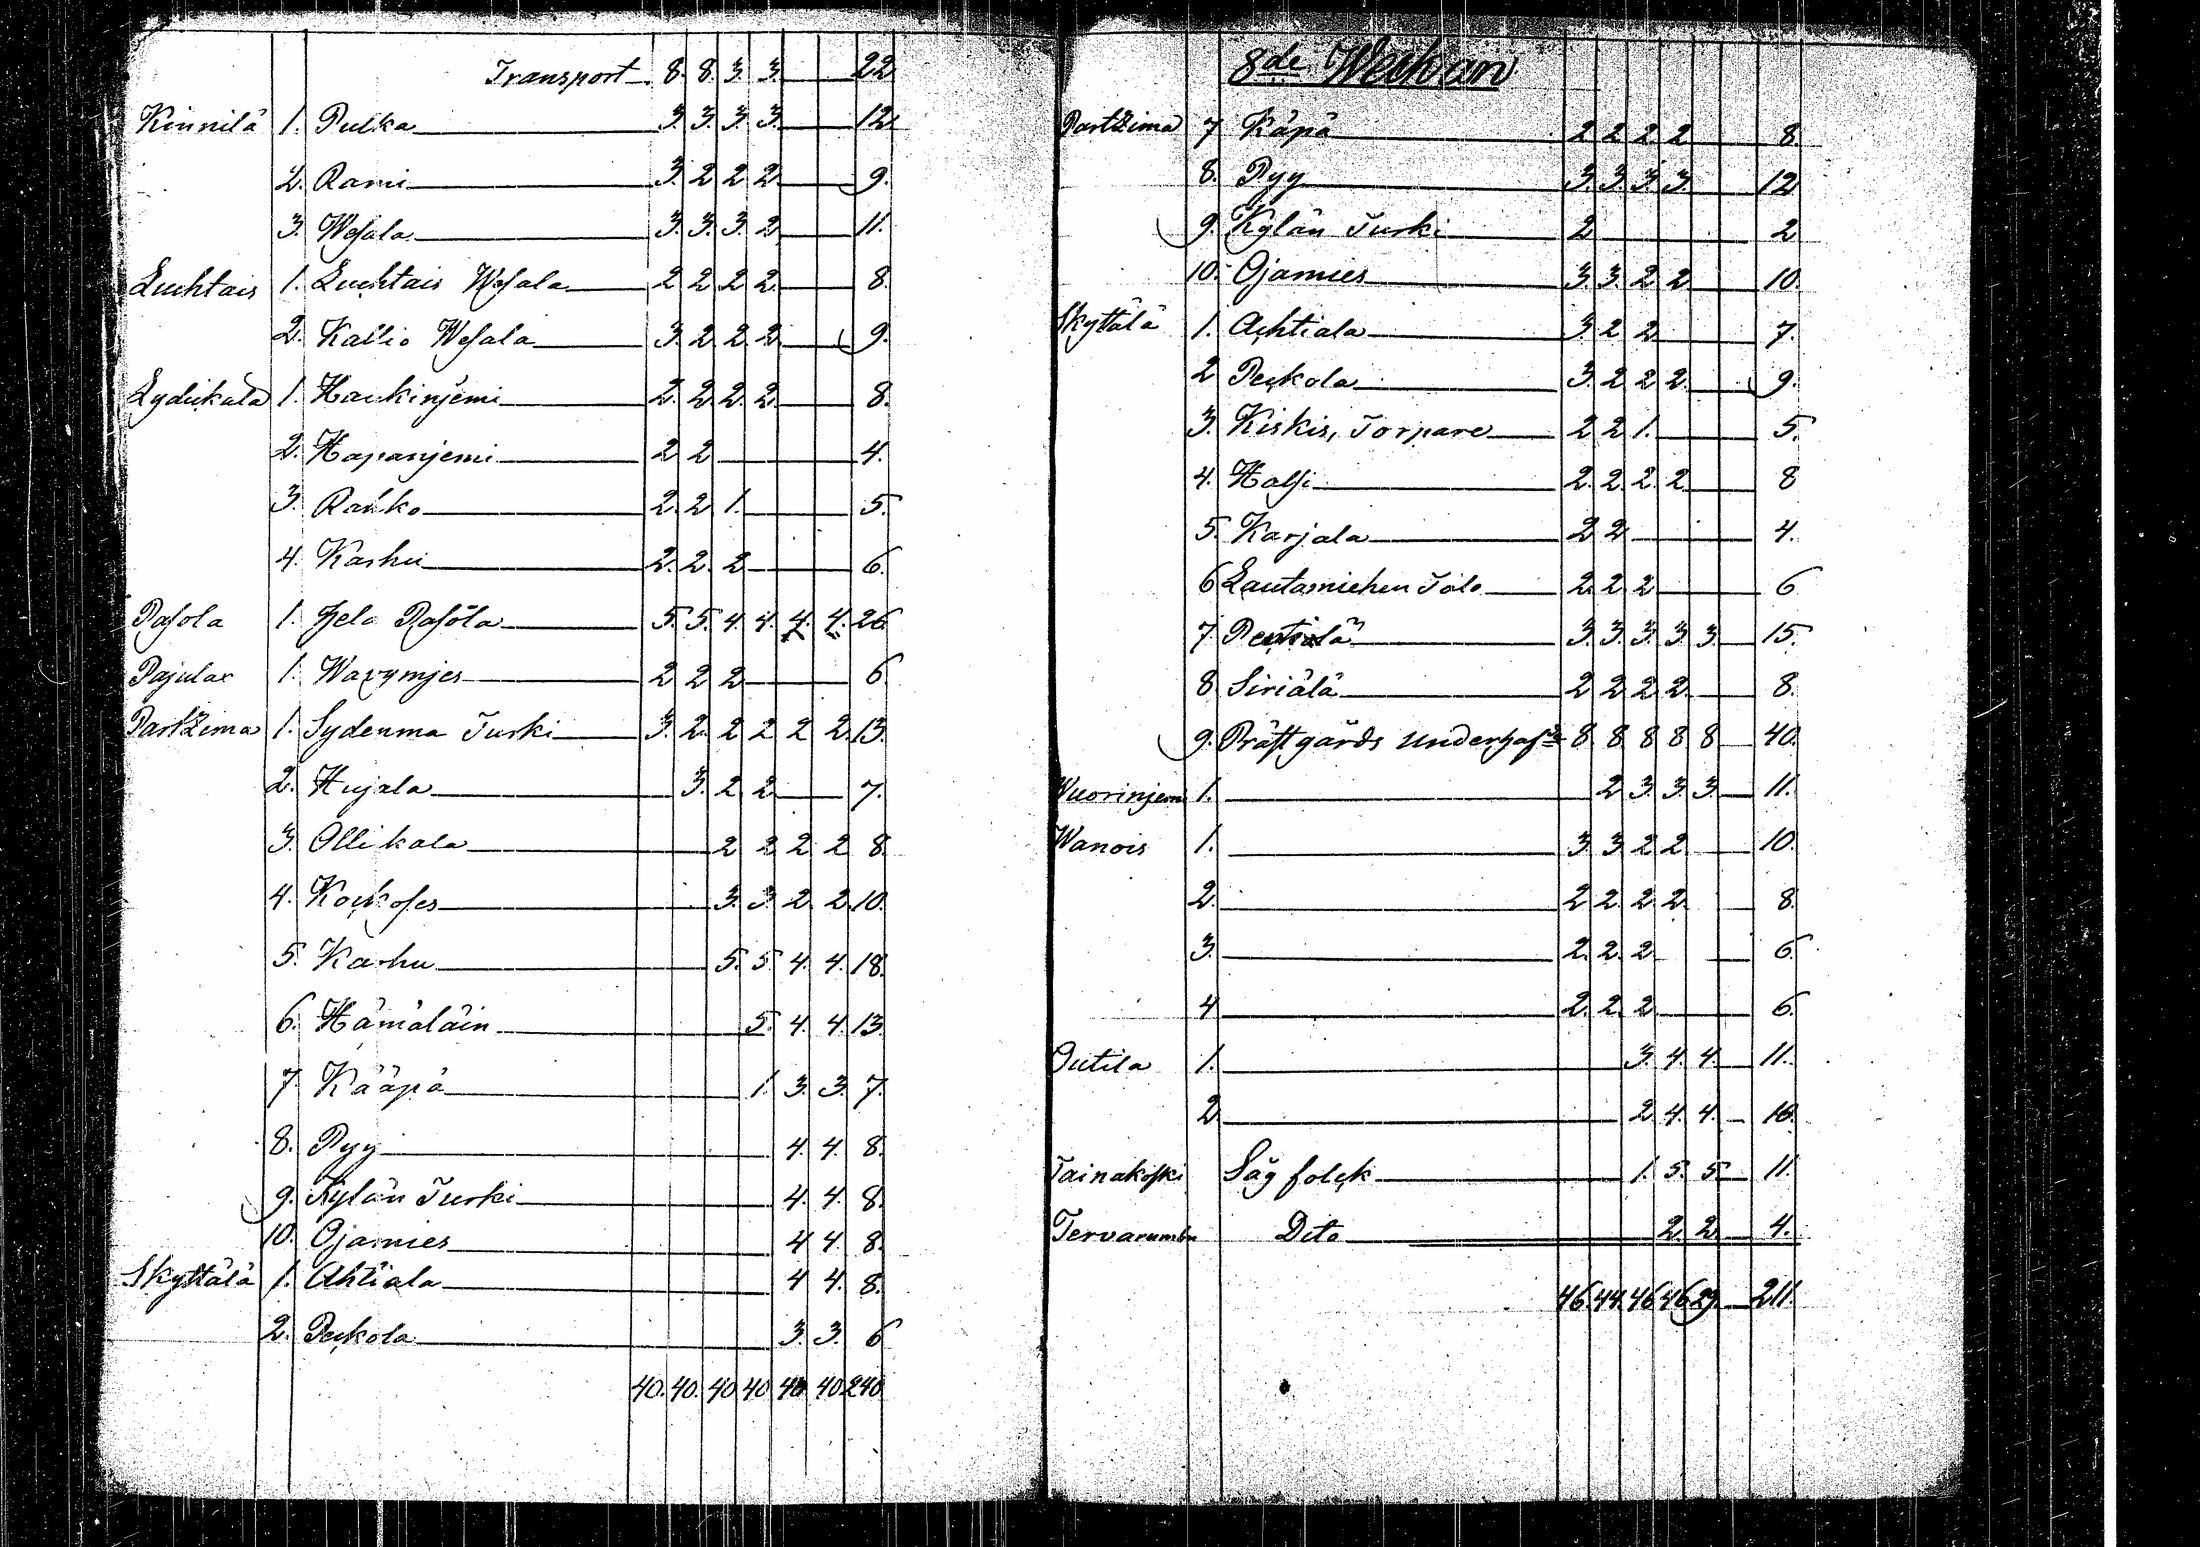 Transport 8. 8. 3. 3. 22
Kinnilä 1. Pulka 3. 3. 3. 3. 12
2. Rami 3. 2 2. 2. 9.
3. Wesala 3. 3. 3. 2 11.
Luchtais 1. Luchtais Wesala 2 2 2 2. 8.
2. Kallio Wesala 3. 2. 2. 2 9.
Lydickälä 1. Haukinjemi 2. 2. 2. 2. 8.
2. Hapanjemi 2 2 4.
3. Rahko 2. 2 1. 5.
4. Karhu 2. 2. 2 6.
Pasola 1. hela Pasola 5. 5. 4. 4. 4. 4. 26.
Pajulax 1. Waxymjes 2 2 2 6
Partzima 1. Sydenma Turki 3. 2. 2 2 2 2. 13.
2. Hujala 3. 2 2 7.
3. Ollikala 2 2 2 2 8
4. Kockoses 3. 3. 2 2. 10.
5. Karhu 5. 5 4. 4. 18.
6. Hämäläin 5. 4. 4. 13.
7. Kääpä 1. 3. 3. 7.
8. Pyy 4. 4. 8.
9. Kylän Turki 4. 4. 8.
10. Ojamies 4 4. 8.
Skyttälä 1. Ahtiala 4 4. 8.
2. Peckola 3. 3. 6
40. 40. 40 40 40 40. 240
8de Weckan
Partzima 7 Käpä 2 2 2. 2 8.
8. Pyy 3. 3. 3. 3. 12
9. Kylän Turki 2 2
10. Ojamies 3. 3. 2 2 10.
Skyttälä 1. Achtiala 3. 2 2 7.
2 Peckola 3. 2 2 2. 9.
3. Kiskis, Torpare 2 2 1. 5.
4. Halsi 2. 2. 2. 2. 8
5. Karjala 2 2 4.
6 Lautamiehen Tolo 2. 2. 2 6
7. Pentilä 3. 3. 3. 3. 3. 15.
8 Siriälä 2 2 2 2. 8.
9. Prästgårds Underhaf 8. 8. 8 8 8 40.
Wuorinjem 1. 2 3. 3. 3. 11.
Wanois 1. 3. 3 2 2 10.
2. 2 2. 2. 2. 8.
3. 2. 2. 2. 6.
4 2. 2. 2. 6.
Outila 1. 3. 4. 4. 11.
2. 2 4. 4. 10.
Tainakoski Såg folck 1. 5. 5 11.
Tervarumbu Dito 2. 2. 4.
46. 44. 46 46 29. 211.